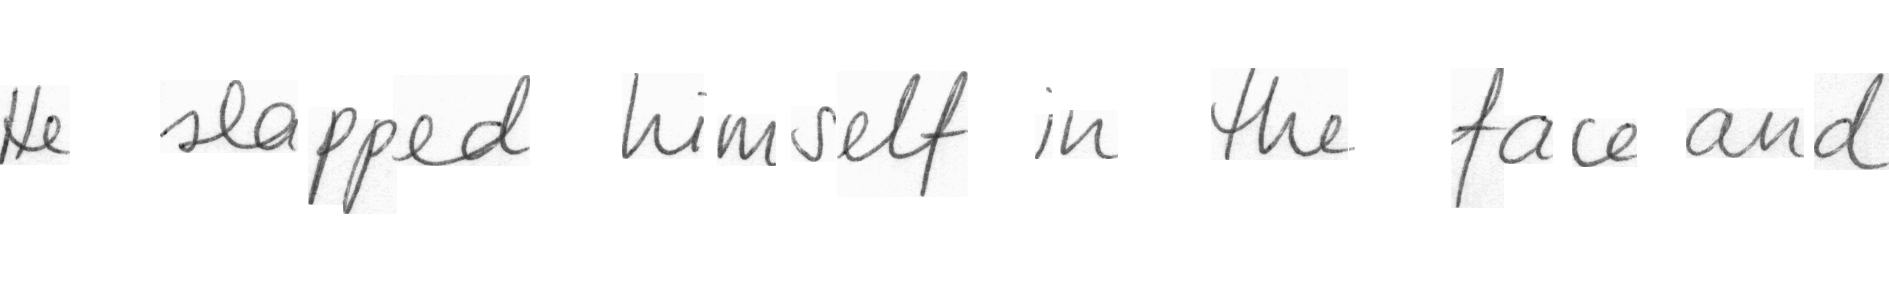 He slapped himself in the face and